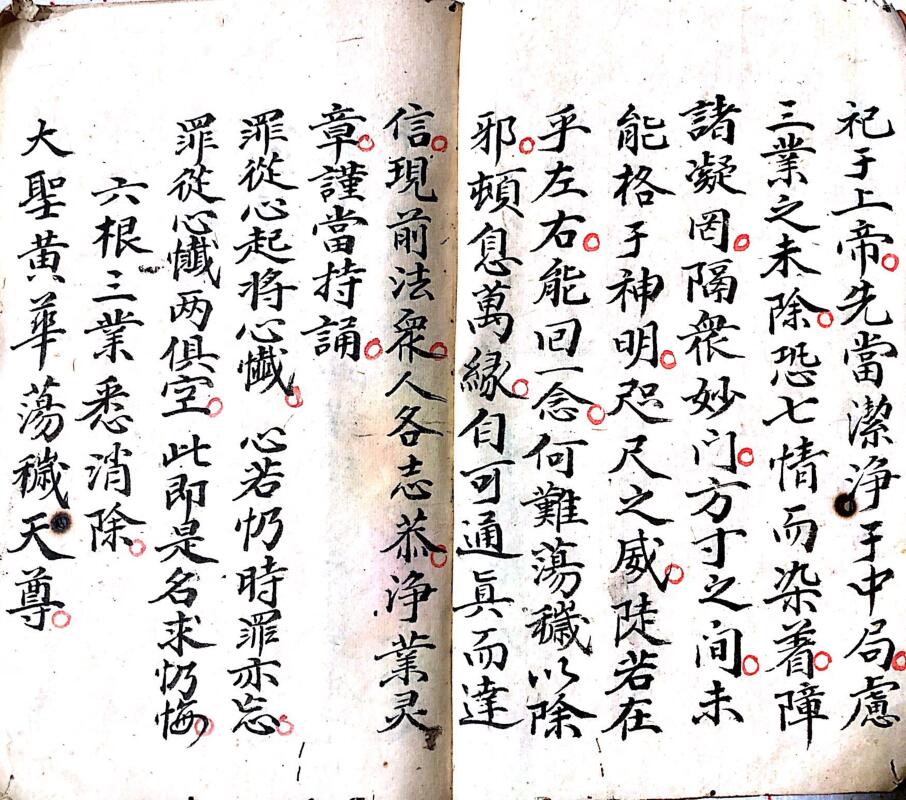 祀于上帝。先當潔净于中局。慮
三業之未除。恐七情而染着。障
諸凝罔。隔衆妙门。方寸之间。未
能格于神明。咫尺之威。陡若在
乎左右。能回一念。何難蕩穢以除
邪。頓息萬緣。自可通眞而達
信。現前法眾。人各志恭。净業灵
章。謹當持誦。
罪從心起将心懺。心若忉時罪亦忘。
罪從心懺两俱空。此即是名求忉悔。
六根三業悉消除。
大聖黄華蕩穢天尊。